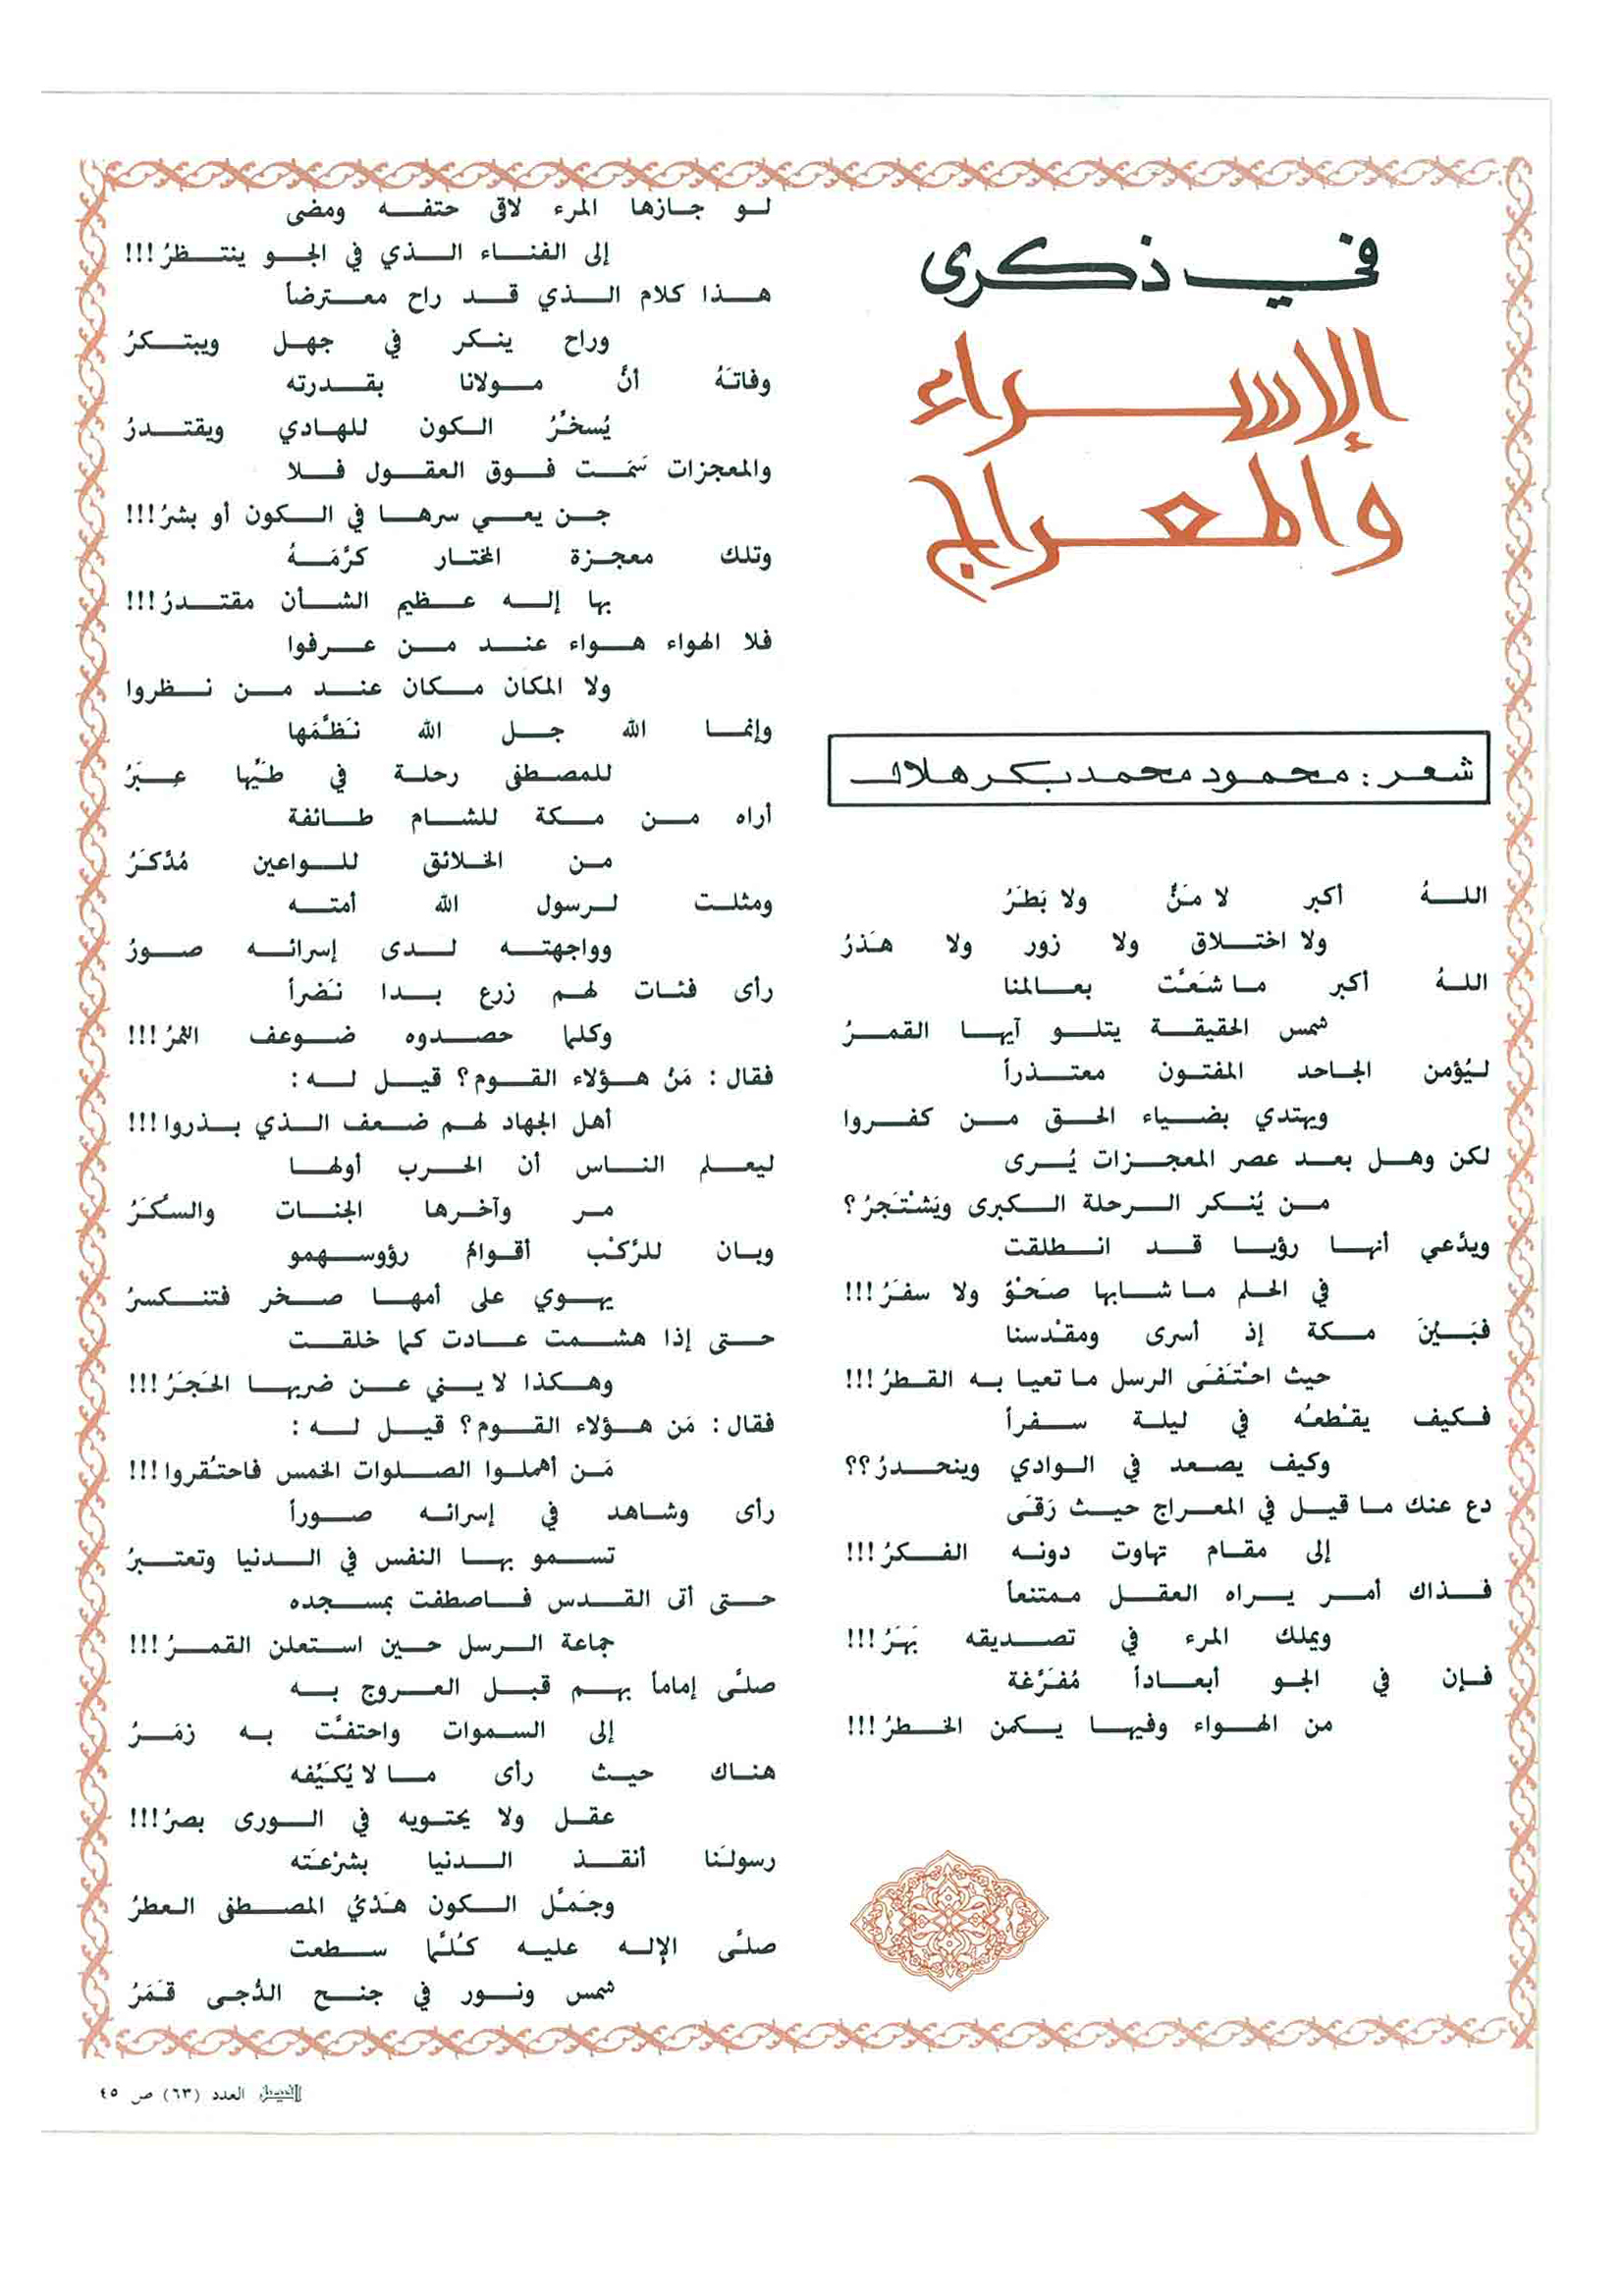 في ذكرى
الإسراء
والمعراج
شعر : محمود محمد بكر هلال
اللـهُ أكبر لا مَنٌّ ولا بَطَرُ
ولا اختـلاق ولا زور ولا هَذرُ
اللـهُ أكبر ما شَعَّت بعـالمنا
شمس الحقيقـة يتلـو آيهـا القمـرُ
ليُؤمن الجـاحد المفتـون معتـذراً
ويهتدي بضـياء الحـق مـن كفـروا
لكن وهـل بعـد عصر المعجـزات يُـرى
مـن يُنـكر الـرحلة الـكبرى ويَشْتَجرُ؟
ويدّعي أنهـا رؤيـا قـد انـطلقت
في الحلم ما شـابها صَحْوٌ ولا سفرُ!!!
فبَـيْنَ مـكة إذ أسرى ومقْدسنا
حيث احْتَفَى الرسل ما تعيا بـه القـطرُ!!!
فـكيف يقْطعـُه في ليلـة سـفراً
وكيف يصـعد في الـوادي وينحـدرُ؟؟
دع عنك مـا قيـل في المعـراج حيـث رَقَى
إلى مقـام تهاوت دونـه الفـكرُ!!!
فـذاك أمـر يـراه العقـل ممـتنعاً
ويملك المرء في تصـديقه بَهَرُ!!!
فـإن في الجـو أبعـاداً مُفَرَّغة
من الهـواء وفيهـا يـكمن الخـطرُ!!!
لـو جـازها المرء لاقى حتفـه ومضى
إلى الفنـاء الـذي في الجـو ينتـظرُ!!!
هـذا كلام الـذي قـد راح معـترضاً
وراح ينـكر في جهـل ويبتـكرُ
وفاتـهُ أنَّ مـولانا بقـدرته
يُسخـِّرُ الـكون للهـادي ويقتـدرُ
والمعجزات سَمَـت فـوق العقـول فـلا
جـن يعـي سرهـا في الـكون أو بشرُ!!!
وتلك معجـزة المختـار كرَّمـهُ
بها إلـه عـظيم الشـأن مقتـدرُ!!!
فلا الهواء هـواء عنـد مـن عـرفوا
ولا المكان مـكان عنـد مـن نـظروا
وإنمـا الله جـل الله نَظَّمَها
للمصـطفى رحلـة في طيِّها عِـبَرُ
أراه مـن مـكة للشـام طـائفة
مـن الخلائق للـواعين مُدَّكَرُ
ومثلـت لـرسول الله أمتـه
وواجهتـه لـدى إسرائـه صـورُ
رأى فئـات لهم زرع بـدا نَضراً
وكلما حصـدوه ضـوعف الثمرُ!!!
فقال : مَنْ هـؤلاء القـوم؟ قيـل لـه :
أهل الجهاد لهم ضـعف الـذي بـذروا!!!
ليعـلم النـاس أن الحـرب أولهـا
مـر وآخـرها الجنـات والسكَـرُ
وبـان للرَّكْب أقـوامٌ رؤوسـهمو
يهـوي على أمهـا صـخر فتنـكسرُ
حـتى إذا هشـمت عـادت كما خلقـت
وهـكذا لا يـني عـن ضربهـا الحَجَرُ!!!
فقـال : مَن هـؤلاء القـوم؟ قيـل لـه :
مَـن أهملـوا الصـلوات الخمس فاحتُقروا!!!
رأى وشـاهد في إسرائـه صـوراً
تسـمو بهـا النفس في الـدنيا وتعتـبرُ
حـتى أتى القـدس فـاصطفت بمسـجده
جماعة الـرسل حـين استعلن القمـرُ!!!
صلـَّى إماماً بهـم قبـل العـروج بـه
إلى السـموات واحتفـَّت بـه زمَـرُ
هنـاك حيـث رأى مـا لا يُكيِّفه
عقـل ولا يحتـويه في الـورى بصرُ!!!
رسولَنا أنقـذ الـدنيا بشرْعَته
وجَمَّل الـكون هَدْيُ المصـطفى العطرُ
صلـَّى الإلـه عليـه كُلـَّما سـطعت
شمس ونـور في جنـح الدُّجـى قَمَرُ
الفيصل العدد (٦٣) ص ٤٥